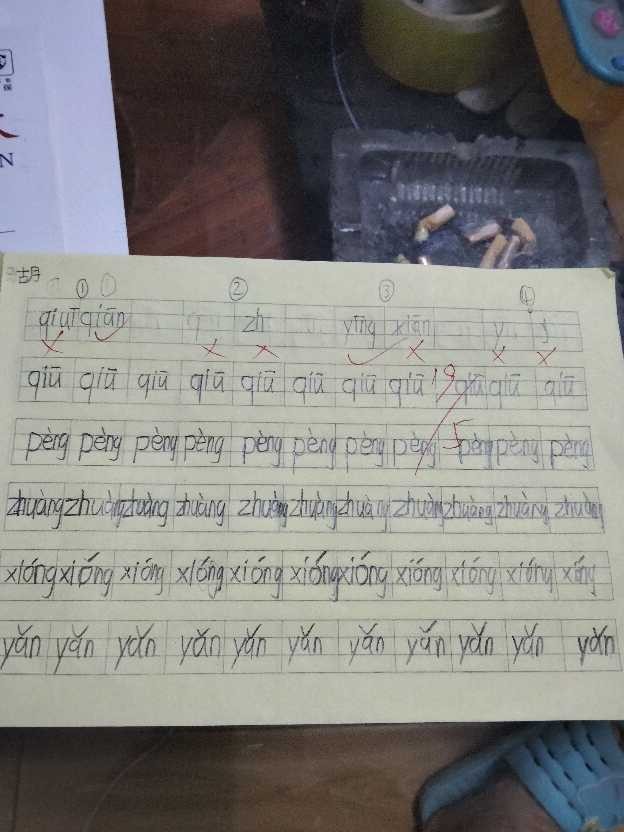 胡
① ① ② ③ ④
qiūqiān q zh yīng xiān y f
qiū qiū qiū qiū qiū qiū qiū qiū 19 qiū qiū qiū
pèng pèng pèng pèng pèng pèng pèng pèng 5 pèng pèng pèng
zhuàng zhuàng zhuàng zhuàng zhuàng zhuàng zhuàng zhuàng zhuàng zhuàng zhuàng
xióng xióng xióng xióng xióng xióng xióng xióng xióng xióng xióng
yǎn yǎn yǎn yǎn yǎn yǎn yǎn yǎn yǎn yǎn yǎn
N